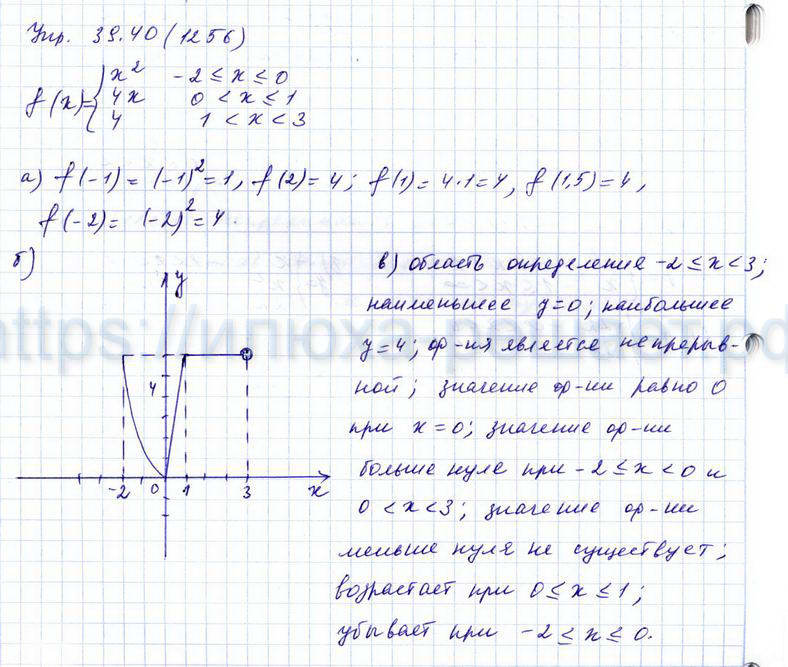 Упр. 39.40 (1256)
f(x)={ x² -2 ≤ x ≤ 0
4x 0 < x ≤ 1
4 1 < x < 3
а) f(-1) = (-1)² = 1, f(2) = 4; f(1) = 4·1 = 4, f(1,5) = 4,
f(-2) = (-2)² = 4.
б)
y
4
-2 0 1 3 x
в) область определения -2 ≤ x < 3;
наименьшее y=0; наибольшее
y=4; ф-ия является непрерыв-
ной; значение ф-ии равно 0
при x = 0; значение ф-ии
больше нуля при -2 ≤ x < 0 и
0 < x < 3; значение ф-ии
меньше нуля не существует;
возрастает при 0 ≤ x ≤ 1;
убывает при -2 ≤ x ≤ 0.
https://илюха-решает.рф